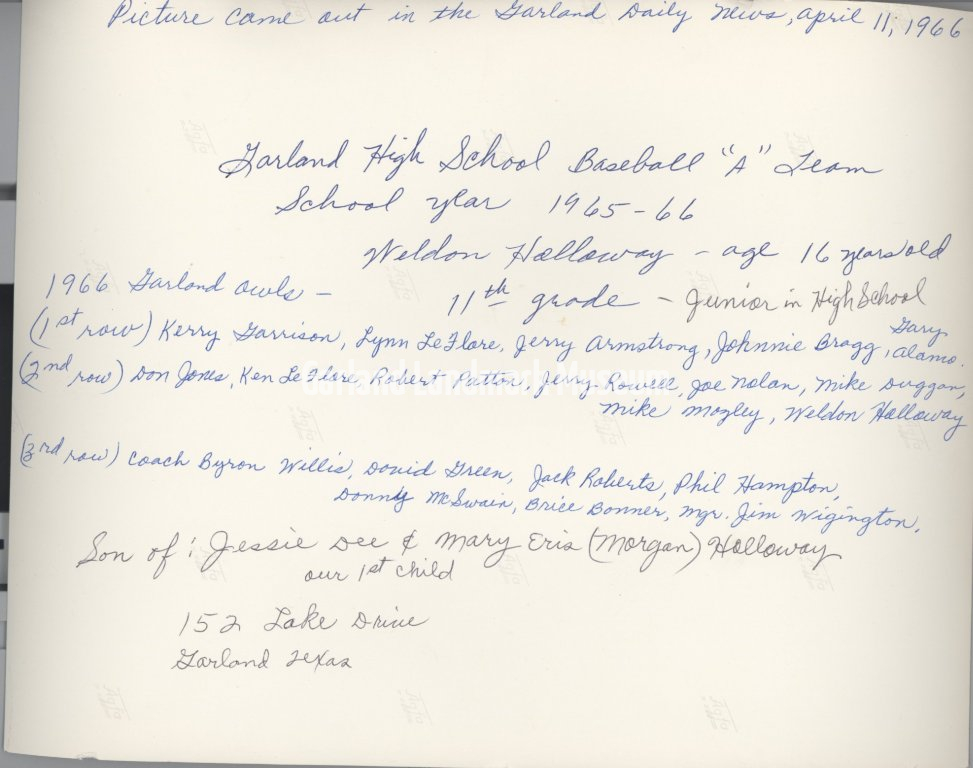 Picture came out in the Garland Daily News, april 11, 1966
Garland High School Baseball "A" Team
School year 1965-66
Weldon Holloway - age 16 years old
1966 Garland Owls - 11th grade - Junior in High School
(1st row) Kerry Garrison, Lynn LeFlore, Jerry Armstrong, Johnnie Bragg, Gary Alamo.
(2nd row) Don Jones, Ken LeFlore, Robert Patton, Jerry Rowell, Joe Nolan, Mike Duggan,
Mike Mozley, Weldon Holloway
(3rd row) Coach Byron Willis, David Green, Jack Roberts, Phil Hampton,
Donny McSwain, Brice Bonner, Mgr. Jim Wigington,
Son of: Jessie Dee & Mary Eris (Morgan) Holloway
our 1st child
152 Lake Drive
Garland Texas
Garland Landmark Museum